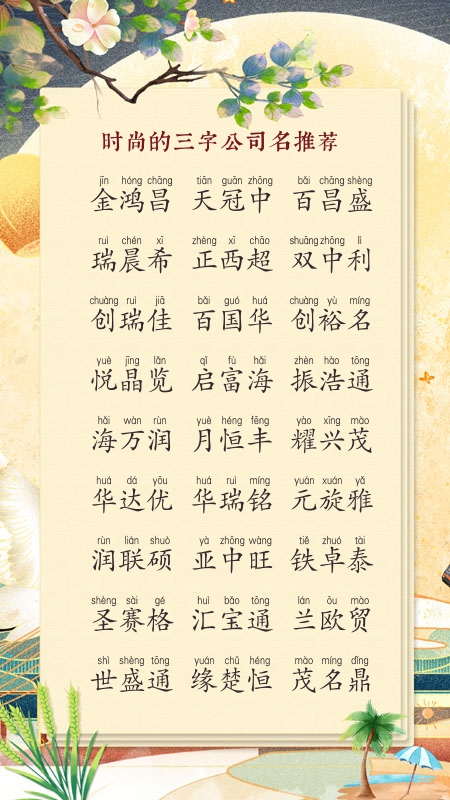 时尚的三字公司名推荐
jīn hóng chāng tiān guān zhōng bǎi chāng shèng
金鸿昌 天冠中 百昌盛
ruì chén xī zhèng xī chāo shuāng zhōng lì
瑞晨希 正西超 双中利
chuàng ruì jiā bǎi guó huá chuàng yù míng
创瑞佳 百国华 创裕名
yuè jīng lǎn qǐ fù hǎi zhèn hào tōng
悦晶览 启富海 振浩通
hǎi wàn rùn yuè héng fēng yào xīng mào
海万润 月恒丰 耀兴茂
huá dá yōu huá ruì míng yuán xuán yǎ
华达优 华瑞铭 元旋雅
rùn lián shuò yà zhōng wàng tiě zhuó tài
润联硕 亚中旺 铁卓泰
shèng sài gé huì bǎo tōng lán ōu mào
圣赛格 汇宝通 兰欧贸
shì shèng tōng yuán chǔ héng mào míng dǐng
世盛通 缘楚恒 茂名鼎